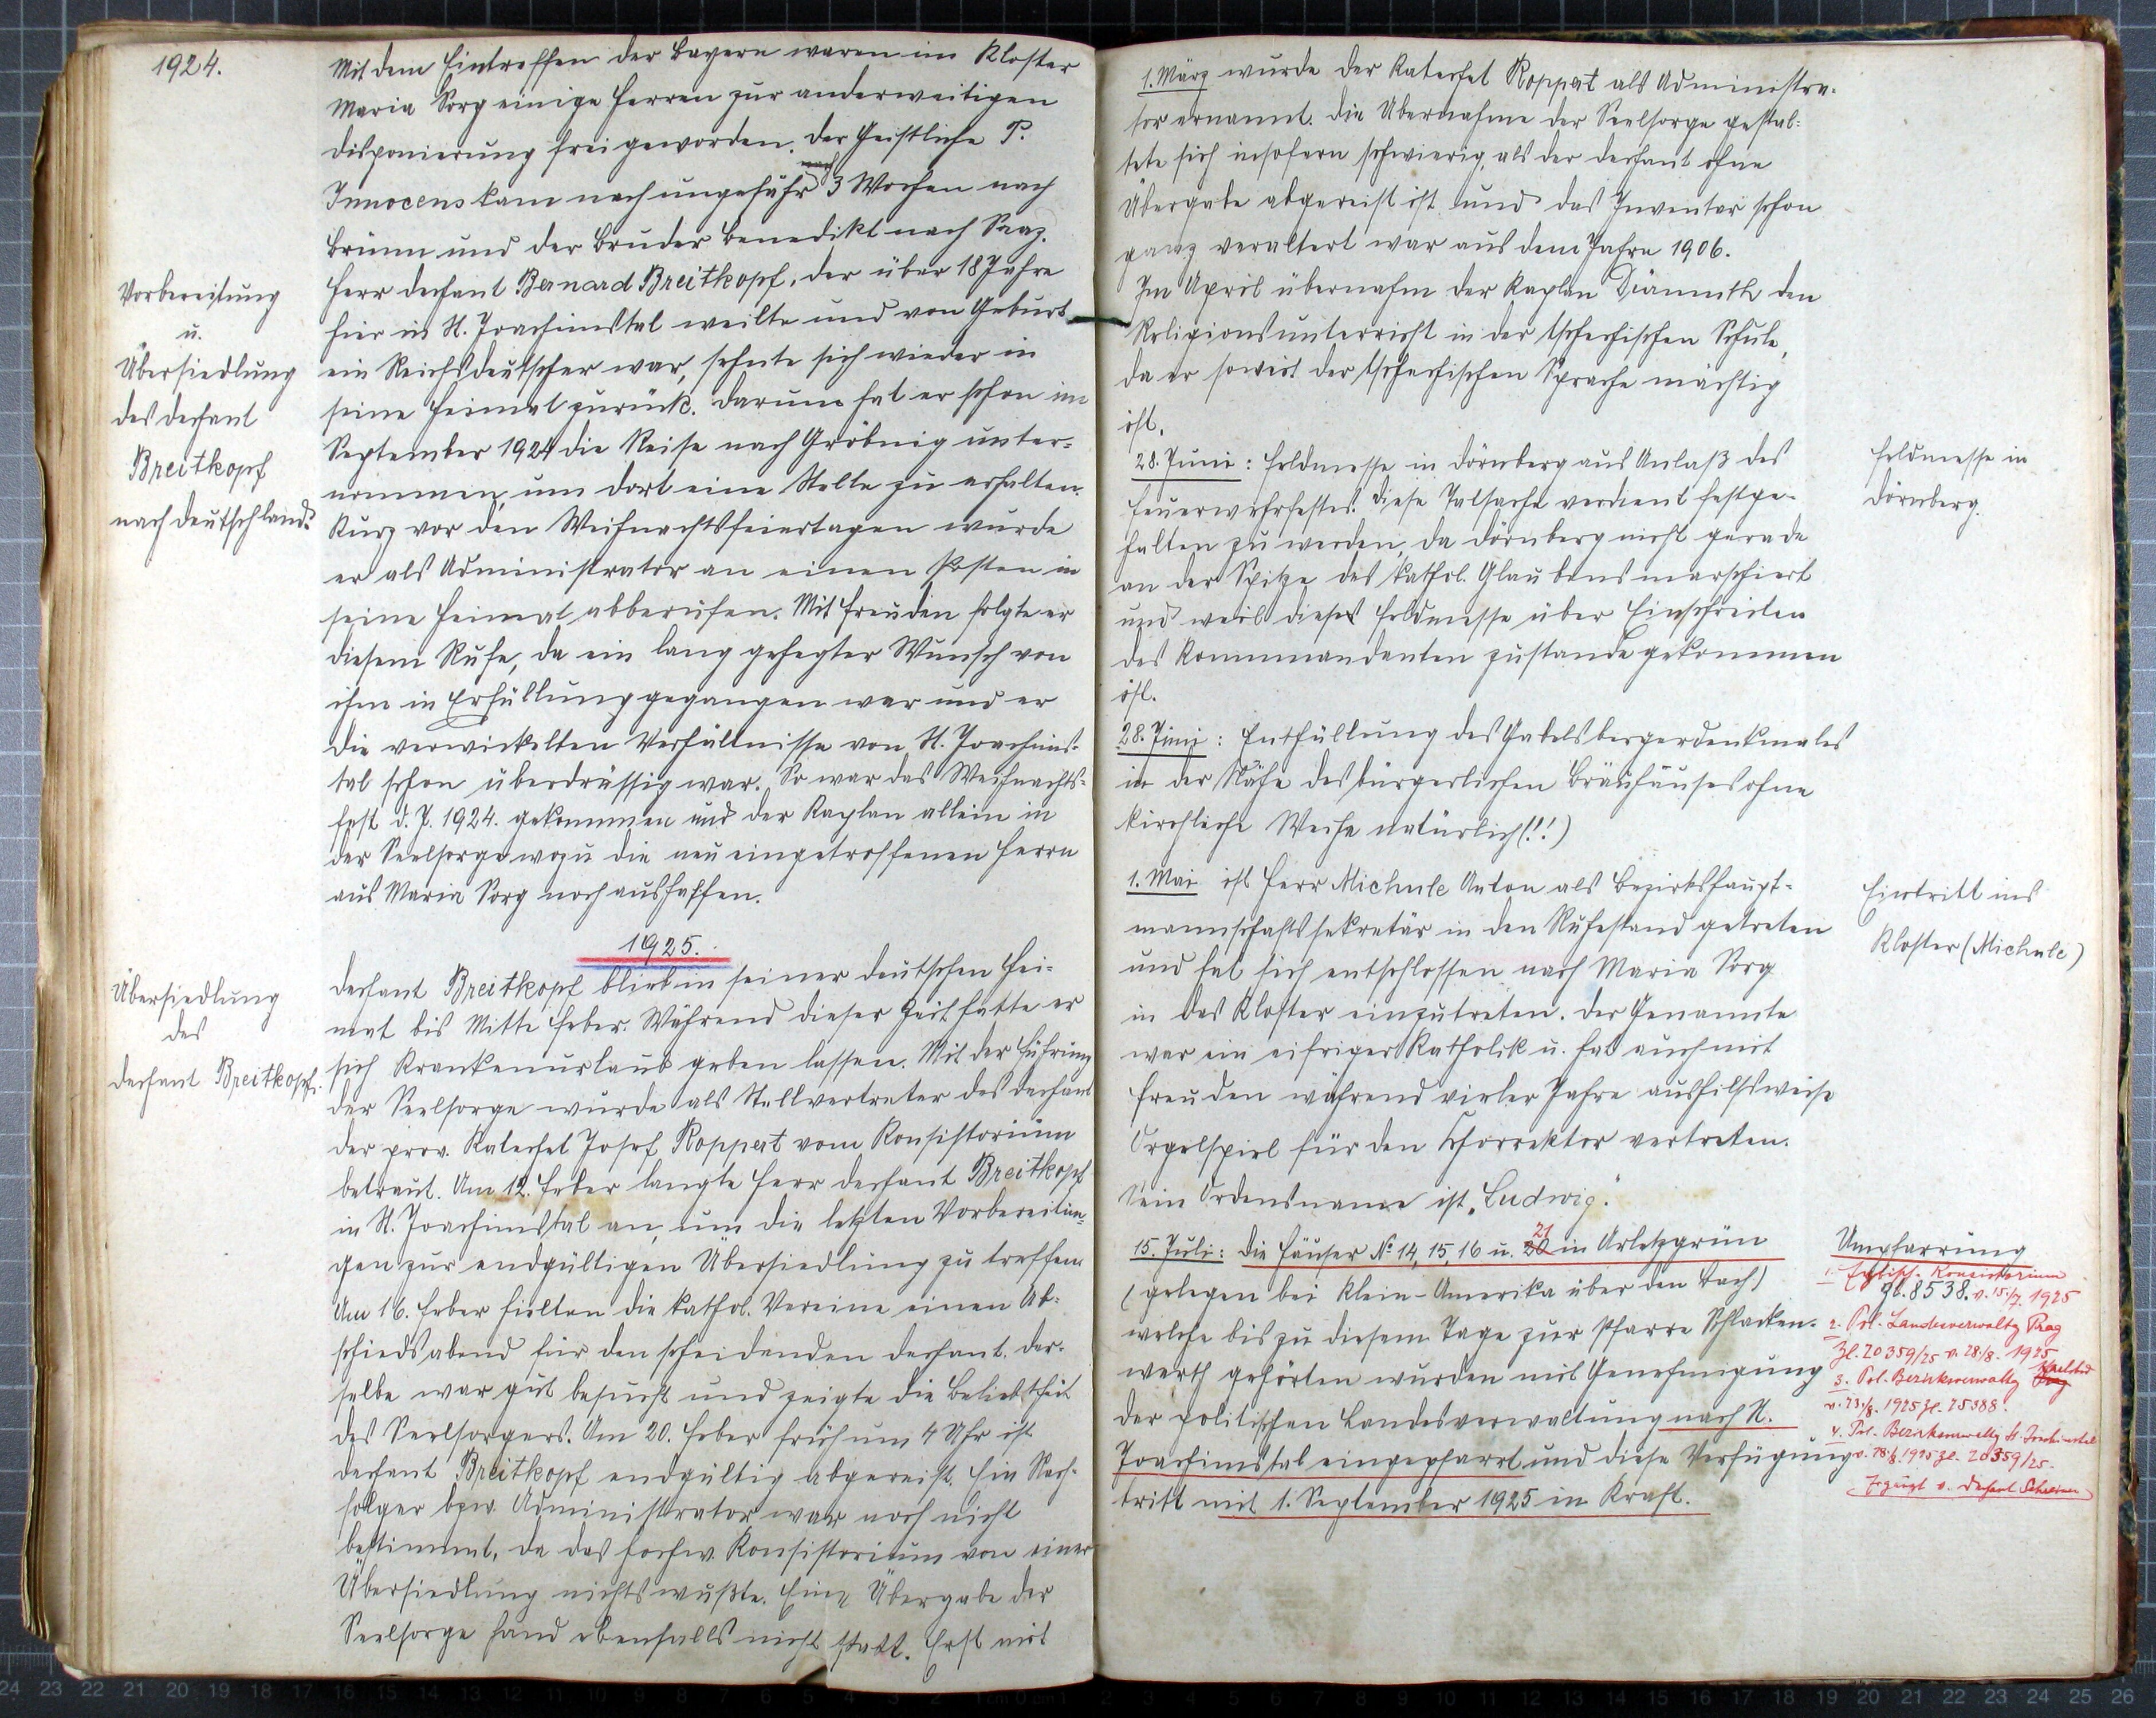 1924.
Mit dem Eintreffen der Bayern waren im Kloster
Maria Sorg einige Herren zur anderweitigen
Disponierung frei geworden. Der Geistliche P.
Innocens kam nach ungefähr 3 Wochen nach
nach
Brünn und der Bruder Benedikt nach Saaz.
Herr Dechant Bernard Breitkopf, der über 18 Jahre
hier in St. Joachimstal weilte und von Geburt
ein Reichsdeutscher war, sehnte sich wieder in
seine Heimat zurück. Darum hat er schon im
September 1924 die Reise nach Gröbnig unter-
nommen, um dort eine Stelle zu erhalten.
Kurz vor den Weihnachtsfeiertagen wurde
er als Administrator an einen Posten in
seine Heimat abberufen. Mit Freuden folgte er
diesem Rufe, da ein lang gehegter Wunsch von
ihm in Erfüllung gegangen war und er
die verwickelten Verhältnisse von St. Joachims-
tal schon überdrüssig war. So war das Weihnachts-
fest d. J. 1924. gekommen und der Kaplan allein in
der Seelsorge wozu die neu eingetroffenen Herrn
aus Maria Sorg noch aushalfen.
Vorbereitung
u.
Übersiedlung
des Dechant
Breitkopf
nach Deutschland.
1925.
Dechant Breitkopf blieb in seiner deutschen Hei-
mat bis Mitte Feber. Während dieser Zeit hatte er
sich Krankenurlaub geben lassen. Mit der Führung
der Seelsorge wurde als Stellvertreter des Dechant
der prov. Katechet Josef Roppert vom Konsistorium
betraut. Am 12. Feber langte Herr Dechant Breitkopf
in St. Joachimstal an, um die letzten Vorbereitun-
gen zur endgültigen Übersiedlung zu treffen.
Am 16. Feber hielten die kathol. Vereine einen Ab-
schiedsabend für den scheidenden Dechant. Der-
selbe war gut besucht und zeigte die Beliebtheit
des Seelsorgers. Am 20. Feber früh um 4 Uhr ist
Dechant Breitkopf endgültig abgereist. Ein Nach-
folger bzw. Administrator war noch nicht
bestimmt, da das hochw. Konsistorium von einer
Übersiedlung nichts wußte. Eine Übergabe der
Seelsorge fand ebenfalls nicht statt. Erst mit
Übersiedlung
des
Dechant Breitkopf.
1. März wurde der Katechet Roppert als Administra-
tor ernannt. Die Übernahme der Seelsorge gestal-
tete sich insofern schwierig, als der Dechant ohne
Übergabe abgereist ist und das Inventar schon
ganz veraltert war aus dem Jahre 1906.
Im April übernahm der Kaplan den
Religionsunterricht in der tschechischen Schule,
da er sowieso der tschechischen Sprache mächtig
ist.
28. Juni: Feldmesse in Dörnberg aus Anlaß des
Feuerwehrfestes. Diese Tatsache verdient festge-
halten zu werden, da Dörnberg nicht gerade
an der Spitze des kathol. Glaubens marschiert
und weil diese Feldmesse über Einschreiten
des Kommandanten zustande gekommen
ist.
Feldmesse in
Dörnberg.
28. Juni: Enthüllung des Gabelsbergerdenkmales
in der Nähe des bürgerlichen Bräuhauses ohne
kirchliche Weihe natürlich (!!)
1. Mai ist Herr Michule Anton als Bezirkshaupt-
mannschaftssekretär in den Ruhestand getreten
und hat sich entschlossen nach Maria Sorg
in das Kloster einzutreten. Der Genannte
war ein eifriger Katholik u. hat auch mit
Freuden während vieler Jahre aushilfsweise
Orgelspiel für den Chorrektor vertreten.
Sein Ordensname ist "Ludwig".
Eintritt ins
Kloster (Michule)
15. Juli: Die Häuser No 14, 15, 16 u. 20 in Arletzgrün
21
(gelegen bei Klein-Amerika über den Bach)
welche bis zu diesem Tage zur Pfarre Schlacken-
werth gehörten wurden mit Genehmigung
der politischen Landesverwaltung nach St.
Joachimstal eingepfarrt und diese Verfügung
tritt mit 1. September 1925 in Kraft.
Umpfarrung
1. Erzbisch. Konsistorium
Zl. 8538. v. 15./7. 1925
2. Pol. Landesverwaltg Prag
Zl. 20359/25 v. 28./8. 1925
3. Pol. Bezirksverwaltg Prag
Karlsbad
v. 23./8. 1925 Zl. 25388.
4. Pol. Bezirksverwaltg St. Joachimstal
v. 28./8. 1925 Zl. 20359/25.
Ergänzt v. Dechant